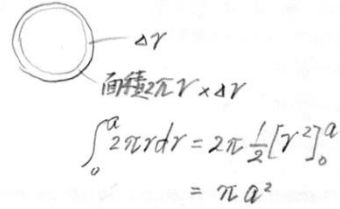 Δr
面積2πr×Δr
∫₀ᵃ 2πrdr = 2π 1/2 [r²]₀ᵃ
= πa²